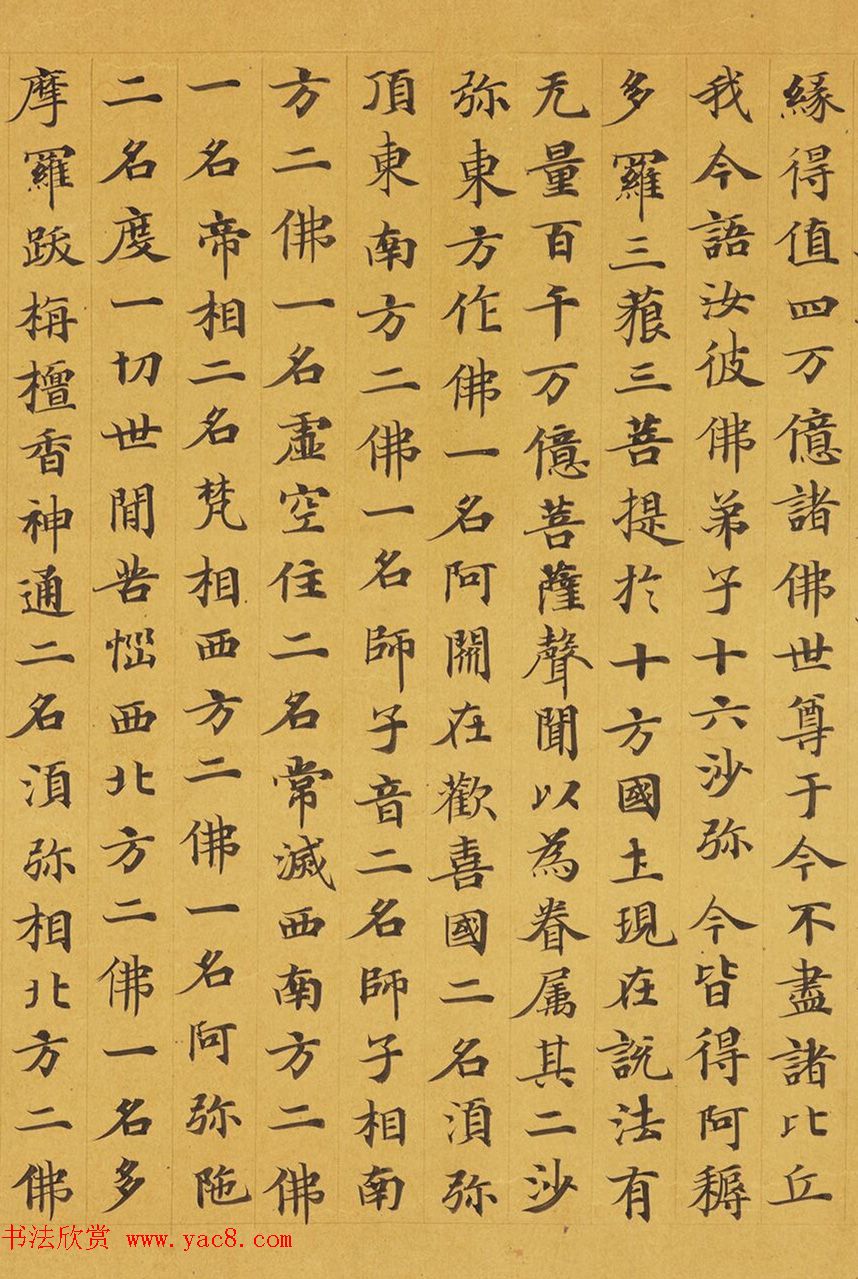 緣得值四万億諸佛世尊于今不盡諸比丘
我今語汝彼佛弟子十六沙弥今皆得阿耨
多羅三藐三菩提於十方國土現在說法有
无量百千万億菩薩聲聞以為眷属其二沙
弥東方作佛一名阿閦在歡喜國二名湏弥
頂東南方二佛一名師子音二名師子相南
方二佛一名虛空住二名常滅西南方二佛
一名帝相二名梵相西方二佛一名阿弥陁
二名度一切世間苦惱西北方二佛一名多
摩羅跋栴檀香神通二名湏弥相北方二佛
书法欣赏 www.yac8.com